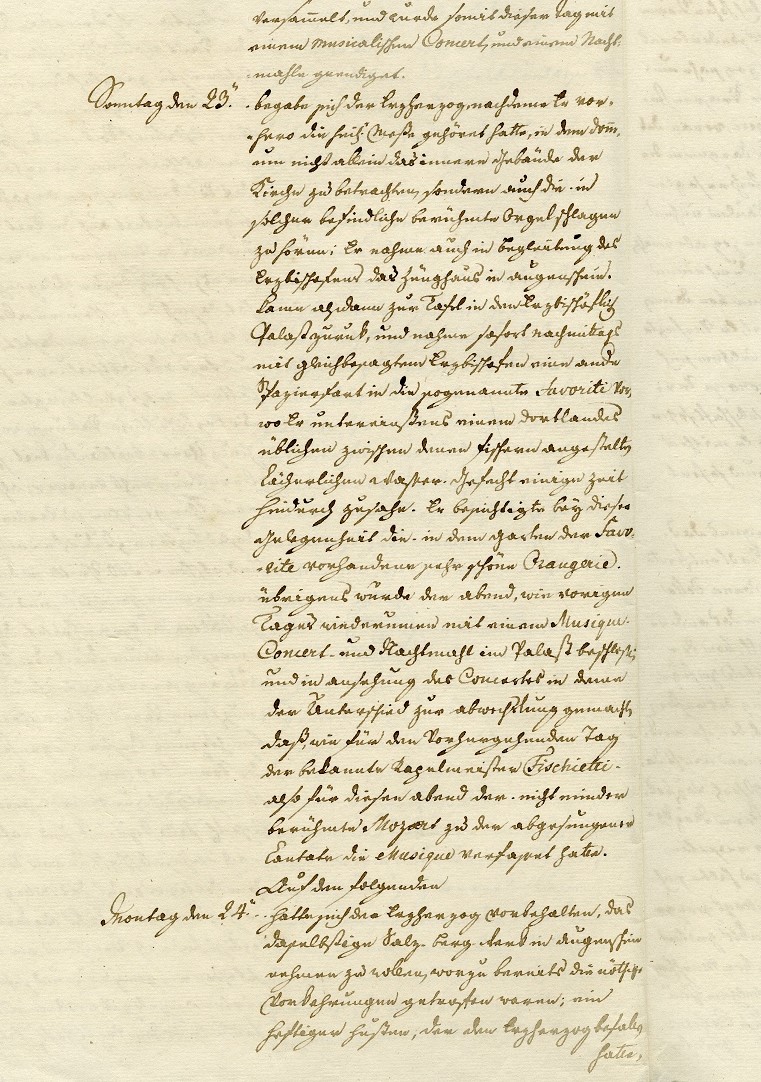 versammelt, und wurde somit dieser Tag mit
einem musicalischen Concert, und einem Nacht-
mahle geendiget.
Sonntag den 23.ten begabe sich der Erzherzog, nachdeme Er vor-
hero die heil: Messe gehöret hatte, in dem Dom,
um nicht allein das innere Gebäude der
Kirche zu betrachten, sondern auch die in
solcher befindliche berühmte Orgel schlagen
zu hören; Er nahme auch in Begleitung des
Erzbischofens das Zeughaus in augenschein.
kame alsdann zur Tafel in den Erzbischöflich
Palast zuruk, und nahme sofort nachmittags
mit gleichbesagtem Erzbischofen eine ande
Spazierfart in die sogenannte Favoriti vor,
wo Er untereinstens einem dortlandes
üblichen zwischen denen fischern angestelten
lächerlichen Wasser-Gefecht einige zeit
hindurch zusahe. Er besichtigte bey dieser
Gelegenheit die in dem Garten der Favo-
rite vorhandene sehr schöne Orangerie.
übrigens wurde der abend, wie vorigen
Tages wiederumen mit einem Musique-
Concert- und Nachtmahl im Palast beschlossen,
und in ansehung des Concertes in deme
der Unterschied zur abwechslung gemacht,
daß, wie für den Vorhergehenden Tag
der bekannte Kapelmeister Fischietti-
also für diesen abend der nicht minder
berühmte Mozart zu der abgesungenen
Cantate die Musique verfasset hatte.
Auf den folgenden
Montag den 24.ten hatte sich der Erzherzog vorbehalten, das
daselbstige Salz-berg-Werk in Augenschein
nehmen zu wollen, worzu bereits die nöthige
Vorkehrungen getroffen waren; ein
heftiger Husten, der den Erzherzog befallen
hatte,